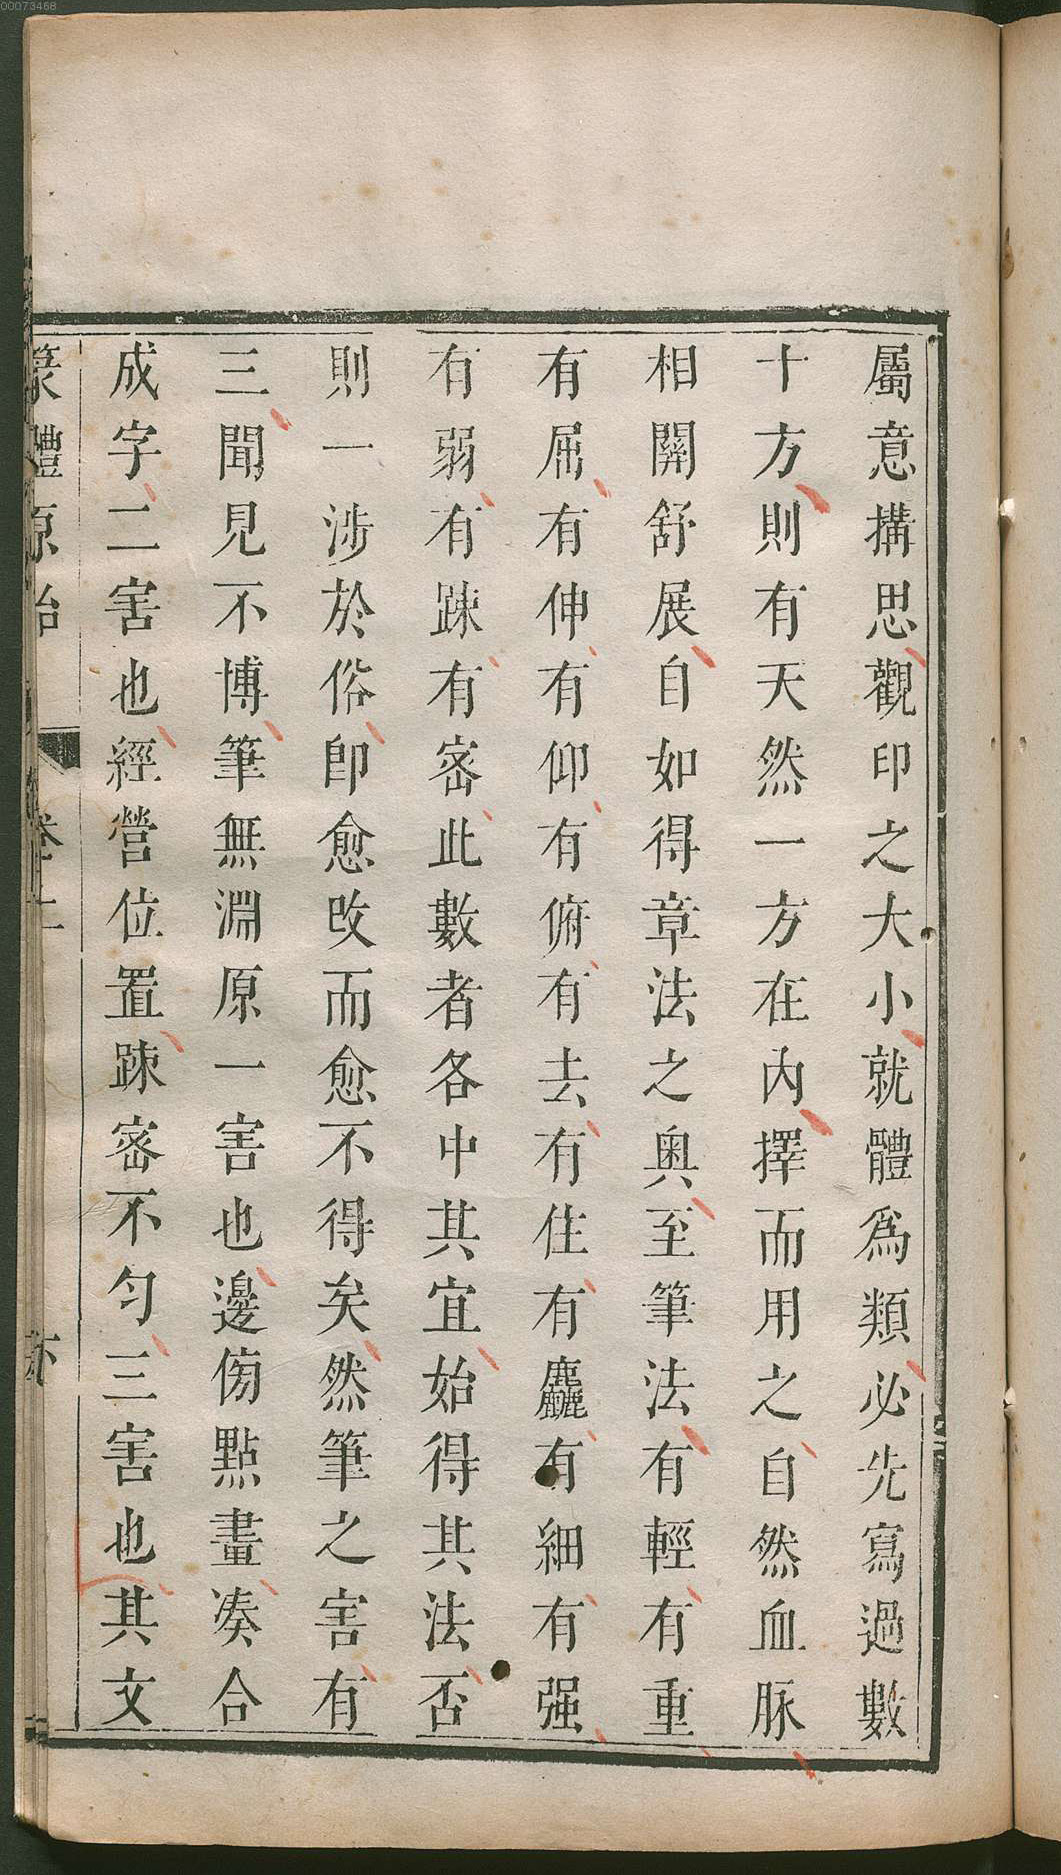 屬意搆思觀印之大小就體爲類必先寫過數
十方則有天然一方在內擇而用之自然血脉
相關舒展自如得章法之奧至筆法有輕有重
有屈有伸有仰有俯有去有住有麤有細有强
有弱有踈有密此數者各中其宜始得其法否
則一涉於俗卽愈改而愈不得矣然筆之害有
三聞見不博筆無淵原一害也邊傍點畫凑合
成字二害也經營位置踈密不勻三害也其文
篆體原始 卷上
00073468